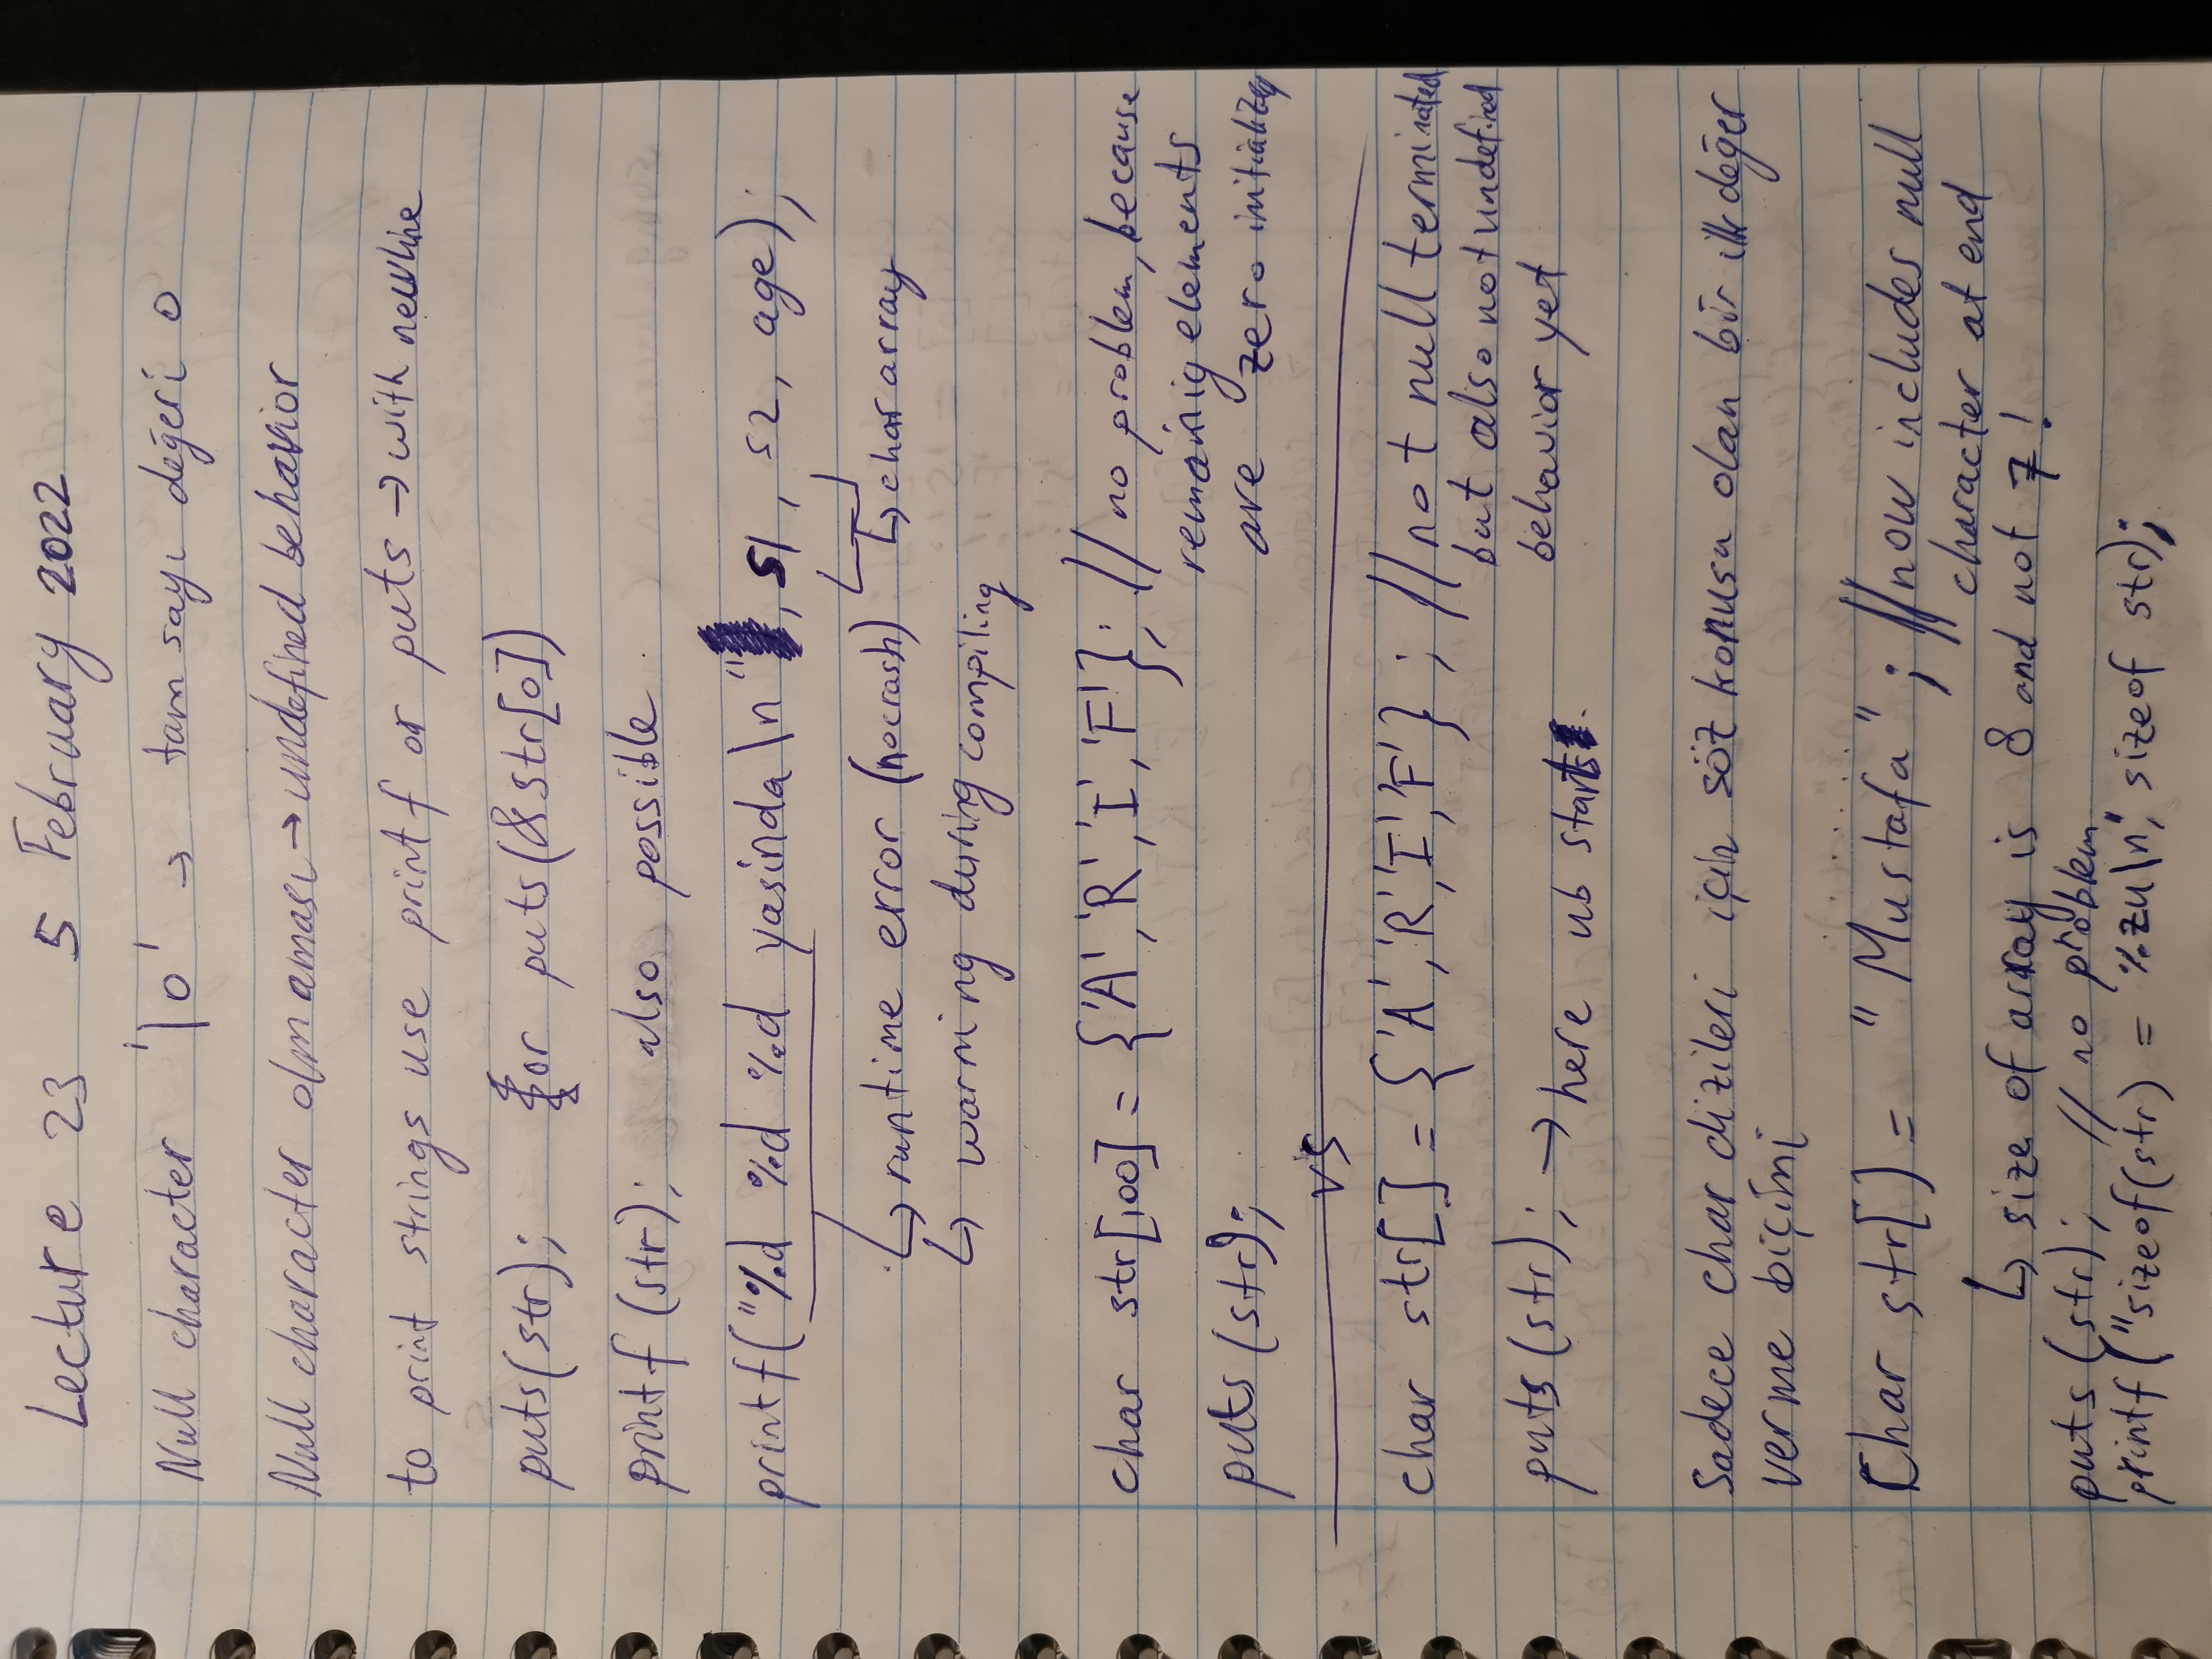 Lecture 23 5 February 2022
Null character '\0' → tam sayı değeri 0
Null character olmaması → undefined behavior
to print strings use printf or puts → with newline
puts(str); or puts(&str[0])
printf(str); also possible
printf("%d %d %d yasinda\n", s1, s2, age);
↳ runtime error (nocrash) ↳ char array
↳ warning during compiling
char str[100] = {'A','R','I','F'}; // no problem, because
remainig elements
puts(str);
are zero initialized
vs
char str[] = {'A','R','I','F'}; // not null terminated
but also not undefined
puts(str); → here ub starts.
behavior yet
Sadece char dizileri için söz konusu olan bir ilk değer
verme biçimi
Char str[] = "Mustafa"; // now includes null
character at end
↳ size of array is 8 and not 7!
puts(str); // no problem
printf("sizeof(str) = %zu\n", sizeof str);